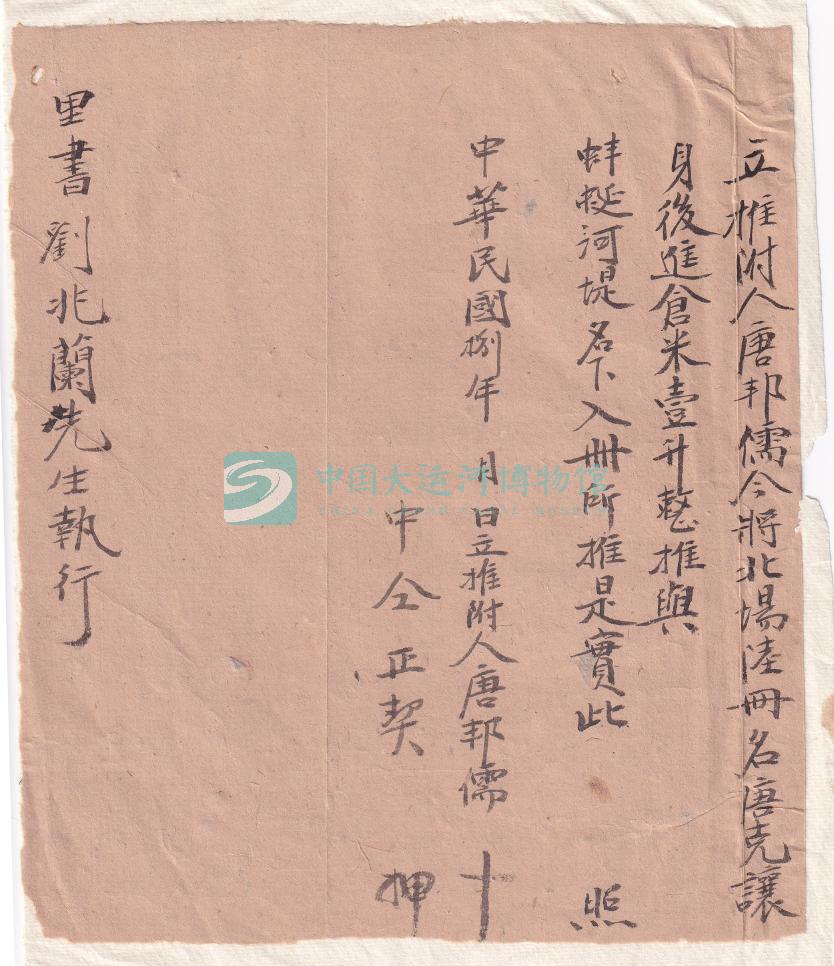 立推附人唐邦儒今將北場陸冊名唐克讓
身後進倉米壹升整推與
蚌蜒河堤名下入冊所推是實此 照
中華民國捌年 月 日立推附人唐邦儒 十
中仝正契 押
里書劉兆蘭先生執行
中国大运河博物馆
CHINA GRAND CANAL MUSEUM